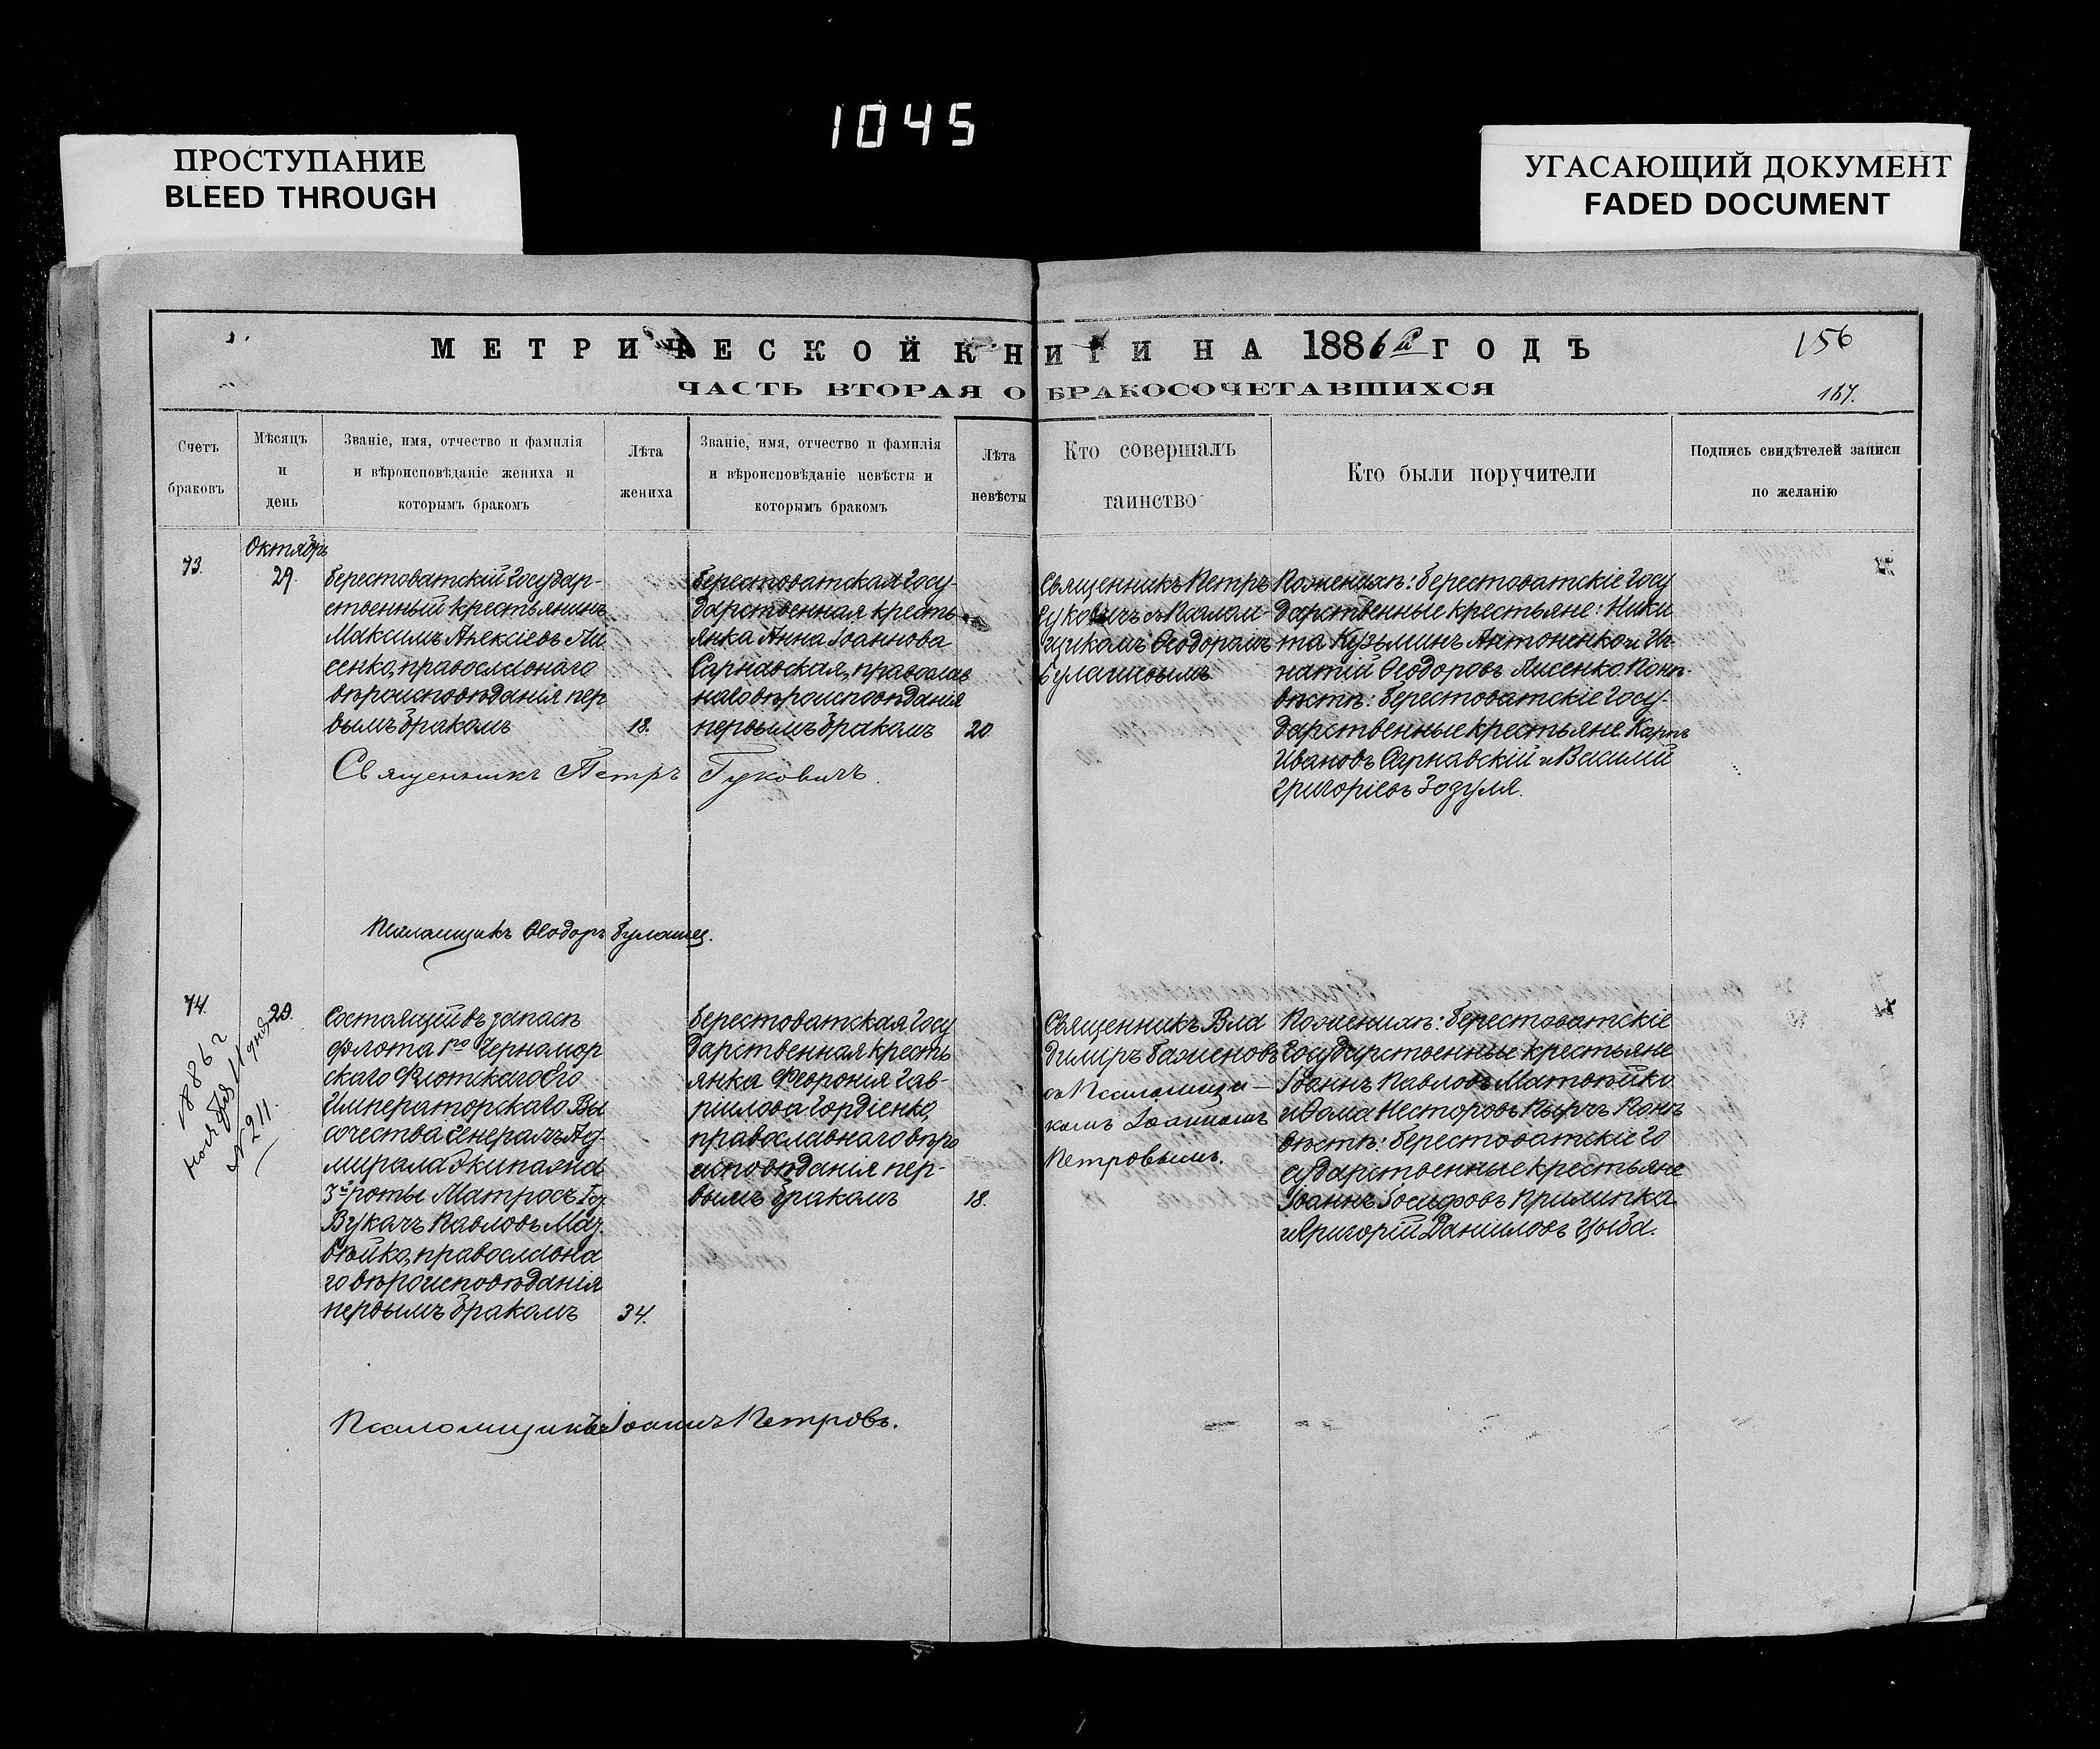 1045
ПРОСТУПАНИЕ
BLEED THROUGH
УГАСАЮЩИЙ ДОКУМЕНТ
FADED DOCUMENT
МЕТРИЧЕСКОЙ КНИГИ НА 1886й ГОДЪ
156
ЧАСТЬ ВТОРАЯ О БРАКОСОЧЕТАВШИХСЯ
187.
Счетъ
браковъ
Мѣсяцъ
и
день
Званіе, имя, отчество и фамилія
и вѣроисповѣданіе жениха и
которымъ бракомъ
Лѣта
жениха
Званіе, имя, отчество и фамилія
и вѣроисповѣданіе невѣсты и
которымъ бракомъ
Лѣта
невѣсты
Кто совершалъ
таинство
Кто были поручители
Подпись свидѣтелей записи
по желанію
73.
Октябрь
29.
Берестоватскій Государ-
ственный крестьянинъ
Максимъ Алексіевъ Ли
сенко, православнаго
вѣроисповѣданія пер
вымъ бракомъ
18.
Берестоватская Госу-
дарственная кресть
янка Анна Іоаннова
Сарнавская, православ
наго вѣроисповѣданія
первымъ бракомъ
20
Священникъ Петръ
Гуковичъ съ Псалом-
щикомъ Ѳеодоромъ
Булашовымъ
По женихѣ: Берестоватскіе Госу
дарственные крестьяне: Ники
та Кузьминъ Антоненко и Иг-
натій Ѳеодоровъ Лисенко. По не-
вѣстѣ: Берестоватскіе Госу-
дарственные крестьяне Карпъ
Ивановъ Сарнавскій и Василій
Григоріевъ Зозуля.
Священникъ Петръ Гуковичъ.
Псаломщикъ Ѳеодоръ Булашев.
74.
29.
1886 г
ноября 11 дня
№ 211.
Состоящій въ запасѣ
флота 1го Черномор
скаго Флотскаго Его
Императорскаго Вы
сочества Генералъ Ад-
мирала Экипажа
3й роты Матросъ
Павловъ Мат
вѣйко, православна
го вѣроисповѣданія
первымъ бракомъ
34.
Берестоватская Госу
дарственная кресть
янка Февронія Гав-
ріилова Гордіенко,
православнаго вѣро
исповѣданія пер-
вымъ бракомъ
18.
Священникъ Вла
димиръ Баженовъ
съ Псаломщи-
комъ Іоанномъ
Петровымъ.
По женихѣ: Берестоватскіе
Государственные крестьяне
Іоаннъ Павловъ Матвѣйко
и Ѳома Несторовъ По не
вѣстѣ: Берестоватскіе Го
сударственные крестьяне
Іоаннъ Іосифовъ Прилипка
и Григорій Даніиловъ Цыба.
Псаломщикъ Іоаннъ Петровъ.